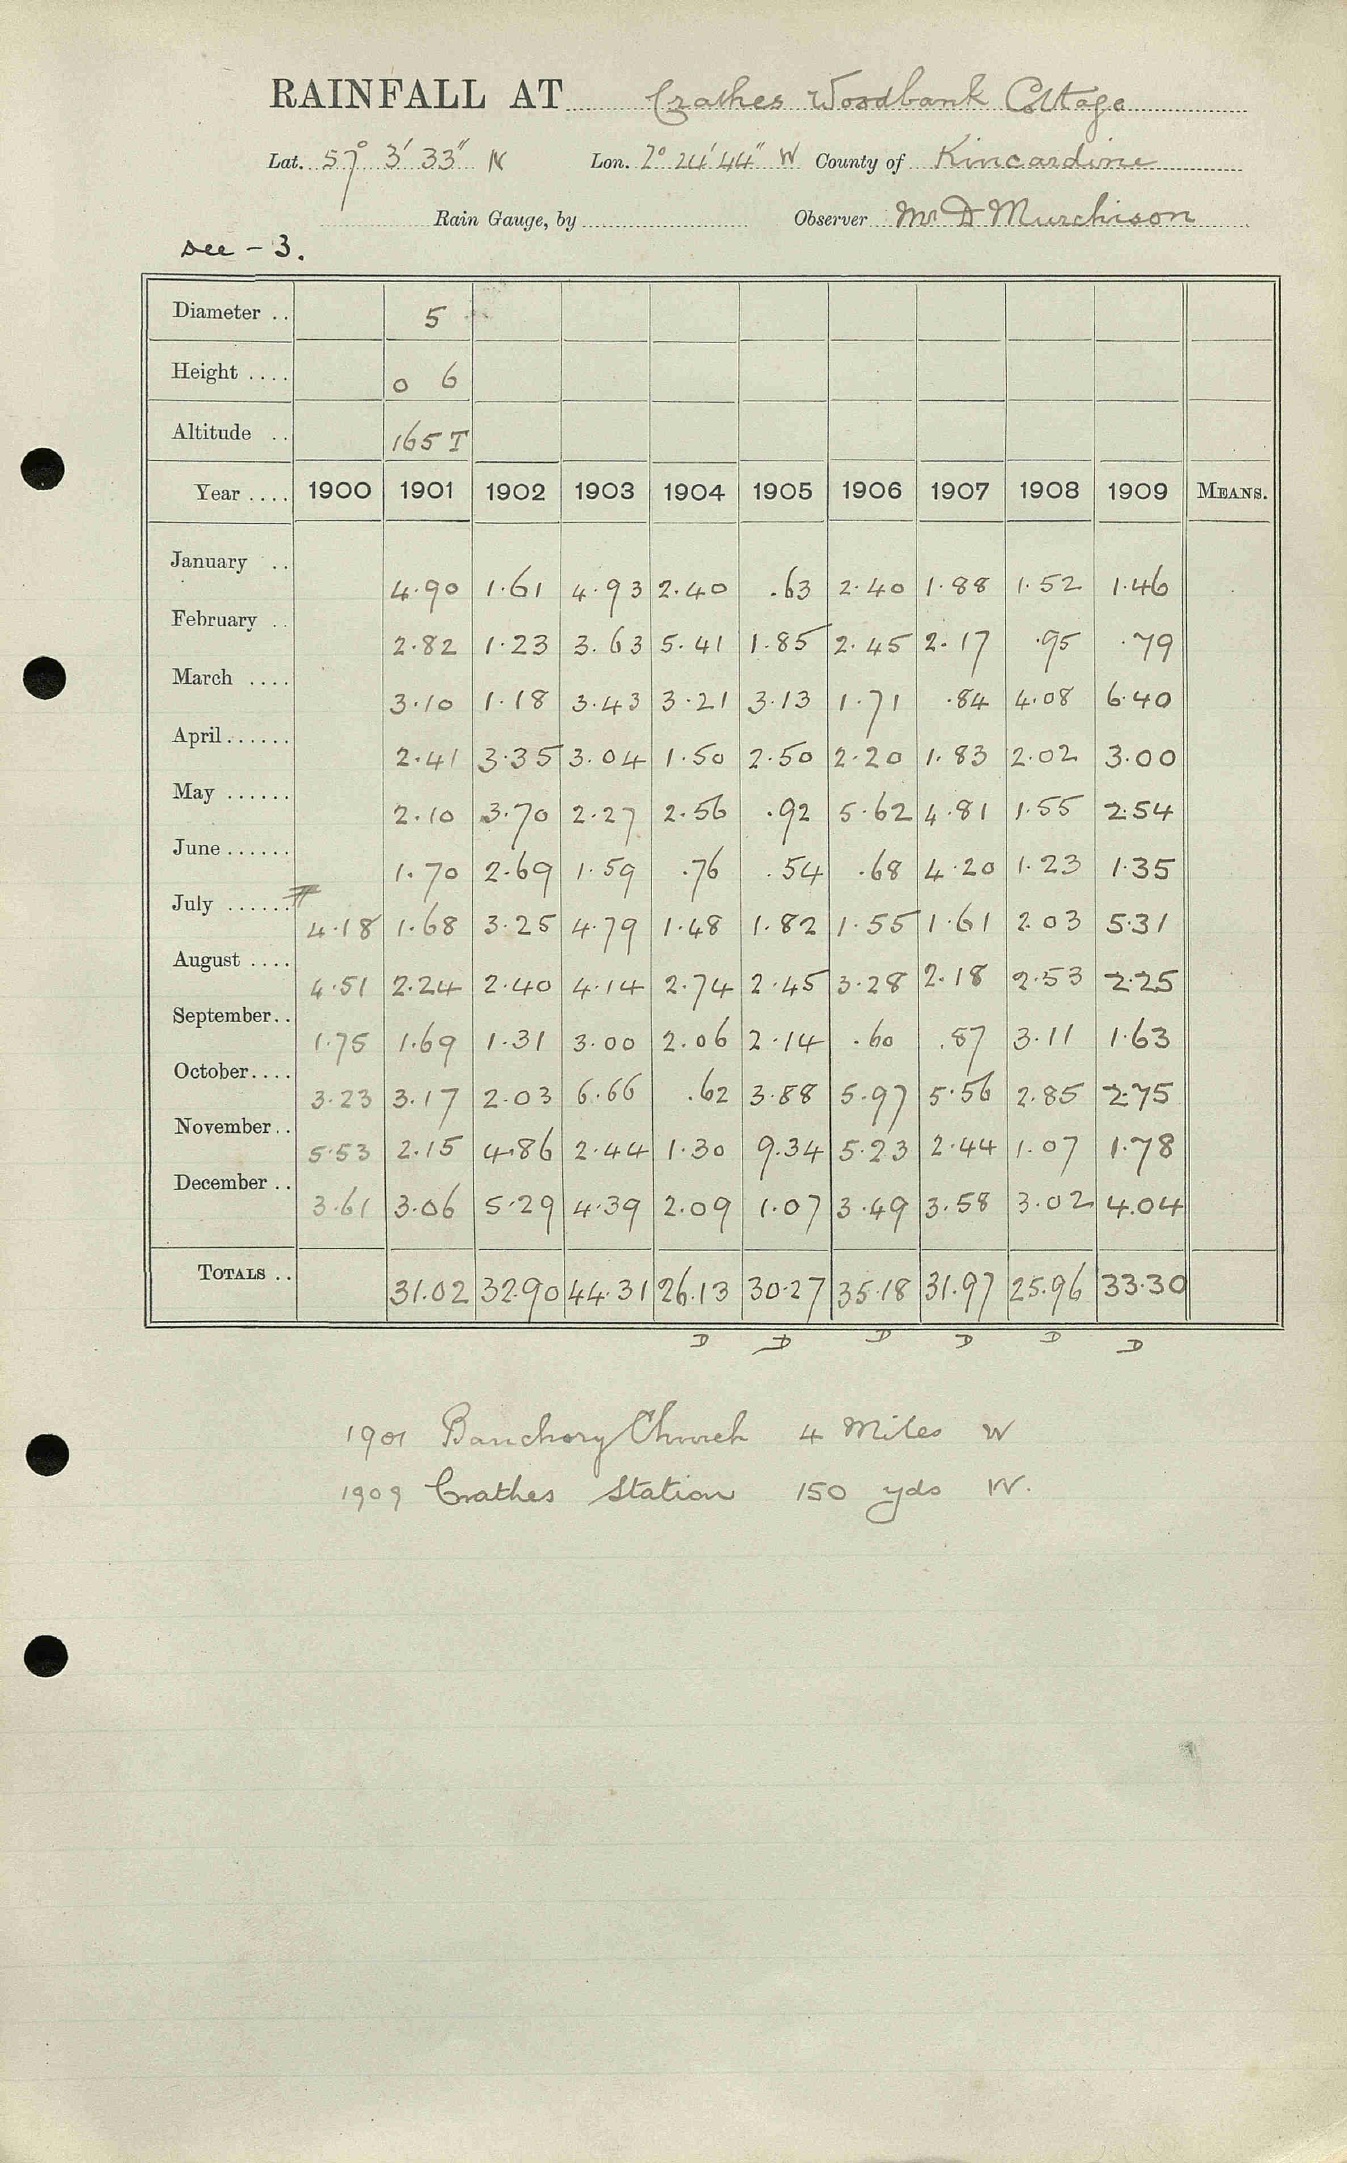 RAINFALL AT Crathes Woodbank Cottage
Lat. 57° 3' 33" N Lon. 2° 24' 44" W County of Kincardine
Rain Gauge, by Observer Mr D Murchison
Dee - 3.
Diameter .. 5
Height .... 0 6
Altitude .. 165 T
Year .... 1900 1901 1902 1903 1904 1905 1906 1907 1908 1909 MEANS.
January .. 4.90 1.61 4.93 2.40 .63 2.40 1.88 1.52 1.46
February .. 2.82 1.23 3.63 5.41 1.85 2.45 2.17 .95 .79
March .... 3.10 1.18 3.43 3.21 3.13 1.71 .84 4.08 6.40
April...... 2.41 3.35 3.04 1.50 2.50 2.20 1.83 2.02 3.00
May ...... 2.10 3.70 2.27 2.56 .92 5.62 4.81 1.55 2.54
June...... 1.70 2.69 1.59 .76 .54 .68 4.20 1.23 1.35
July ...... 4.18 1.68 3.25 4.79 1.48 1.82 1.55 1.61 2.03 5.31
August .... 4.51 2.24 2.40 4.14 2.74 2.45 3.28 2.18 2.53 2.25
September.. 1.75 1.69 1.31 3.00 2.06 2.14 .60 .87 3.11 1.63
October.... 3.23 3.17 2.03 6.66 .62 3.88 5.97 5.56 2.85 2.75
November.. 5.53 2.15 4.86 2.44 1.30 9.34 5.23 2.44 1.07 1.78
December .. 3.61 3.06 5.29 4.39 2.09 1.07 3.49 3.58 3.02 4.04
TOTALS .. 31.02 32.90 44.31 26.13 30.27 35.18 31.97 25.96 33.30
D D D D D D
1901 Banchory Church 4 Miles W
1909 Crathes Station 150 yds W.